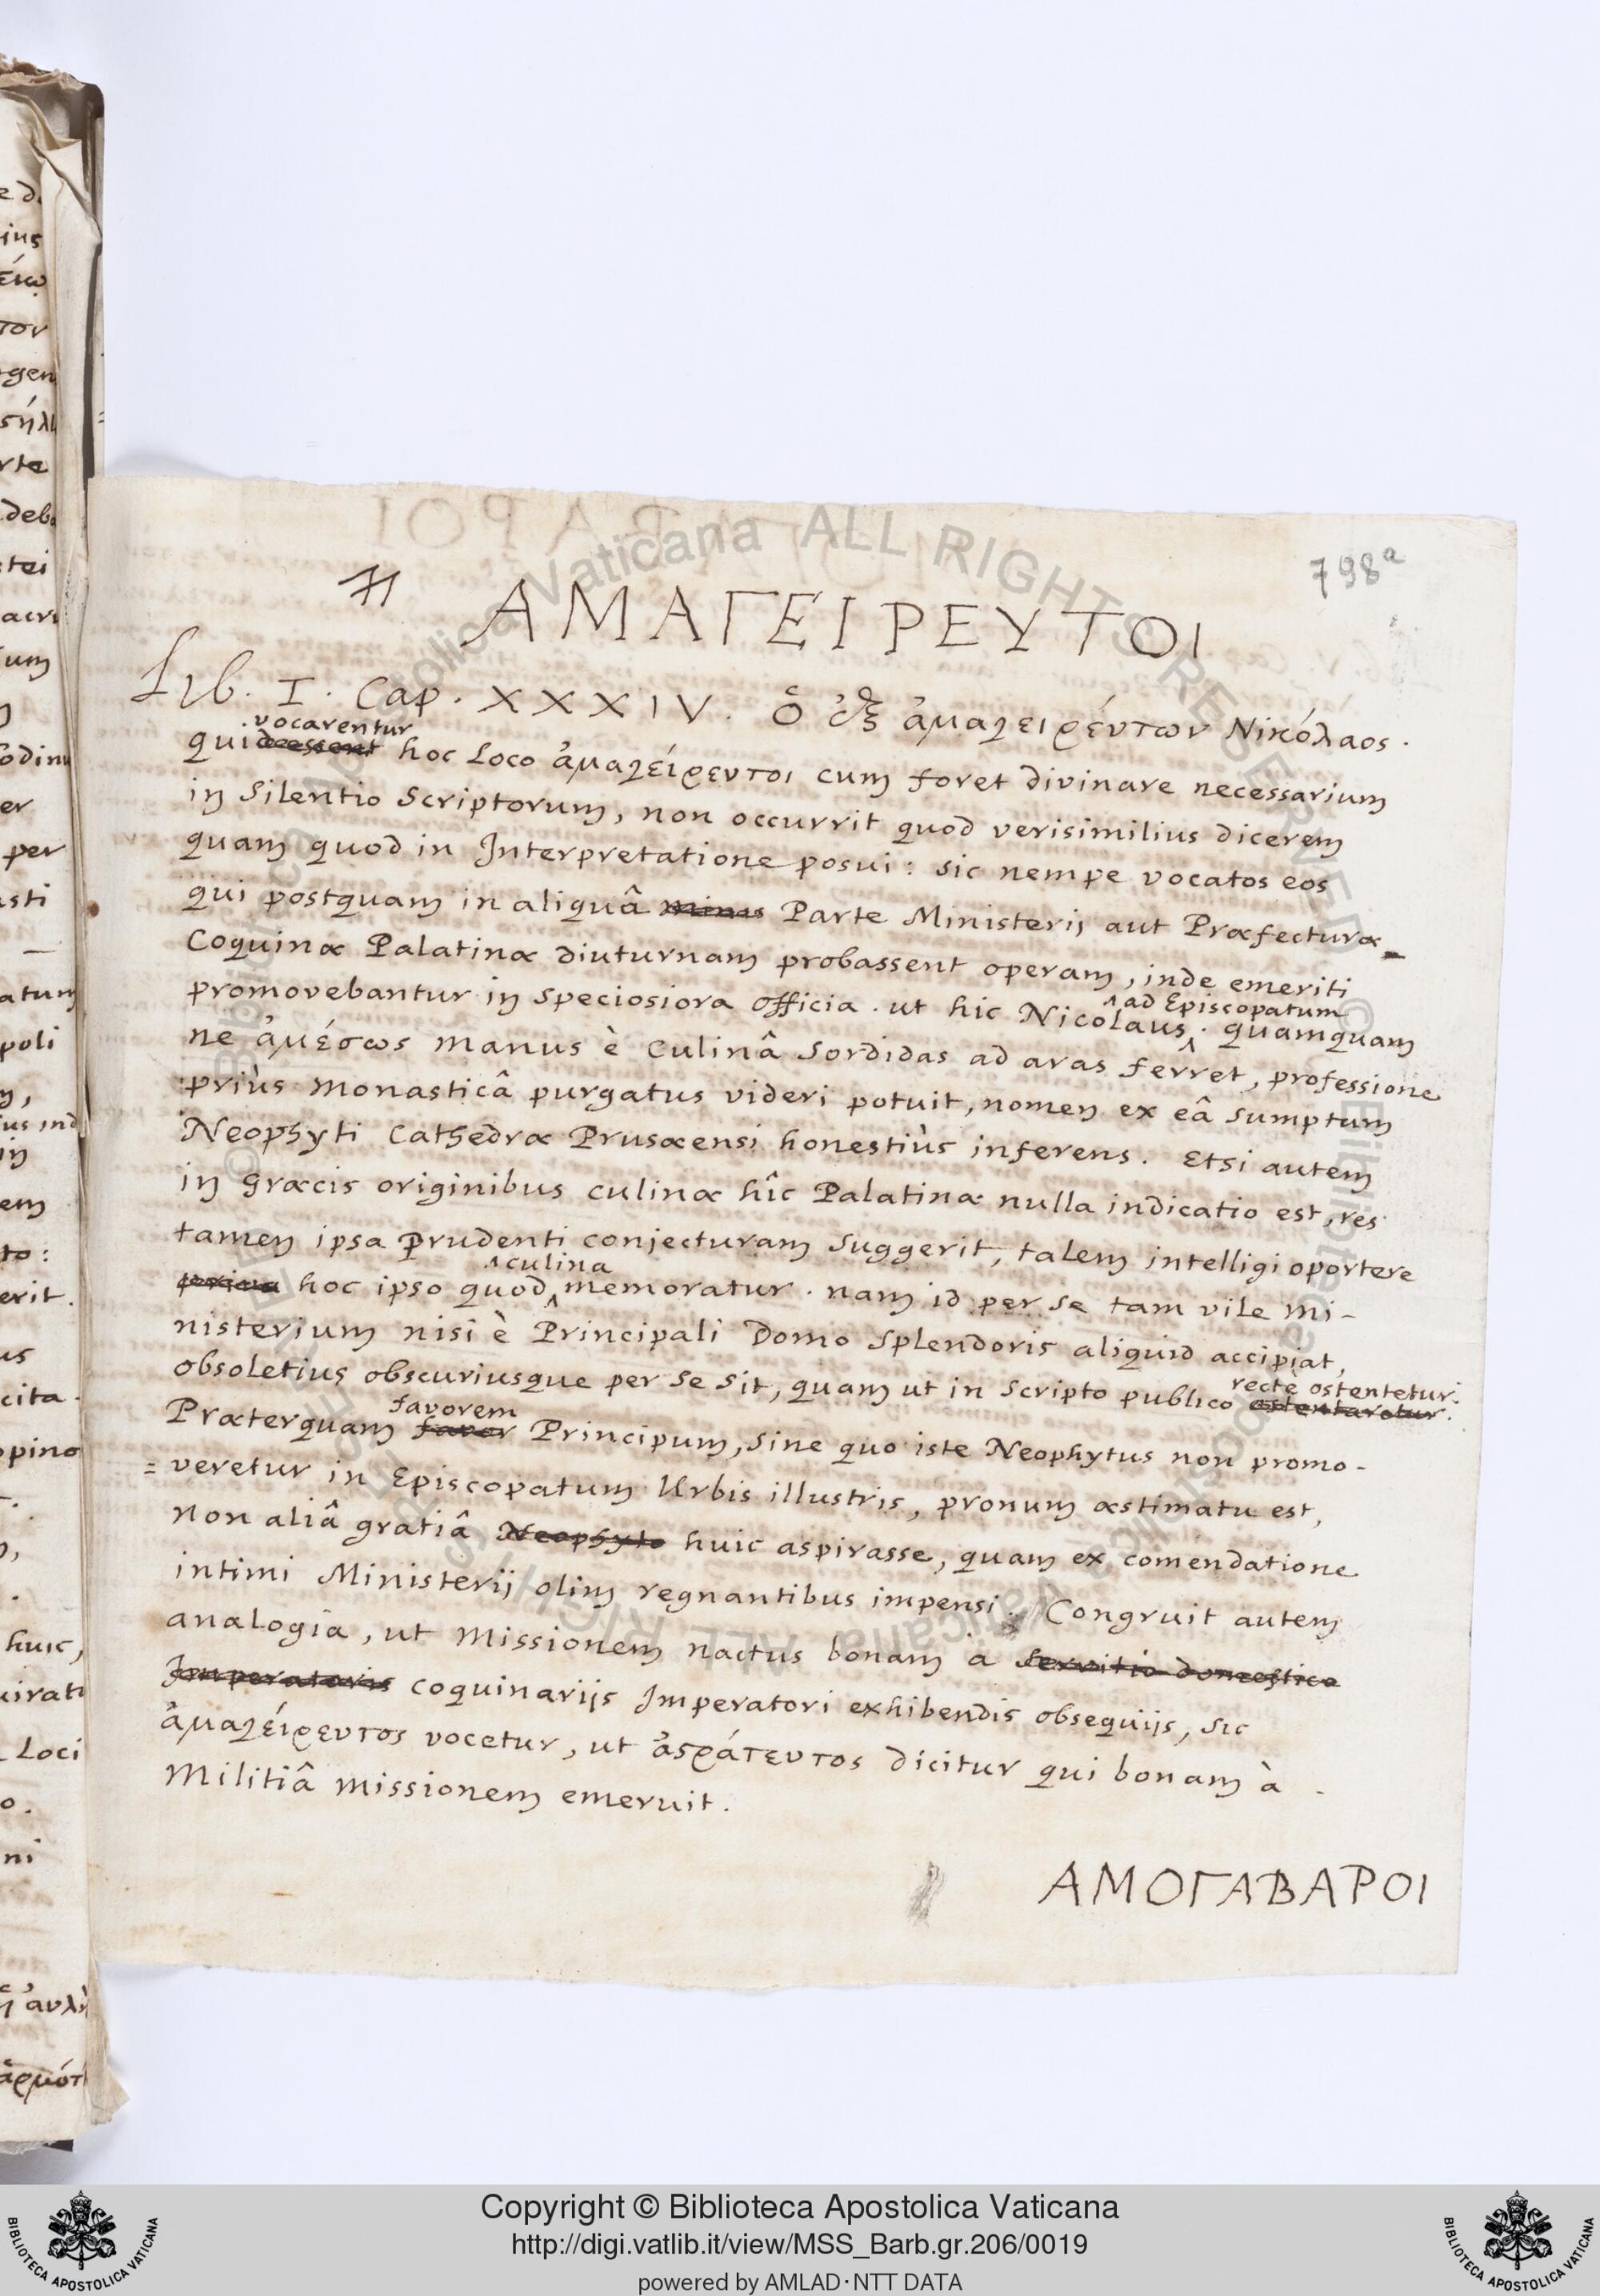 798a
ΑΜΑΓΕΙΡΕΥΤΟΙ
Lib. I. Cap. XXXIV. ὁ ἐξ ἀμαγειρέυτων Νικόλαος.
vocarentur
qui dicessent hoc loco ἀμαγείρευτοι cum foret divinare necessarium
in silentio Scriptorum, non occurrit quod verisimilius dicerem
quam quod in Interpretatione posui: sic nempe vocatos eos
qui postquam in aliquâ minus Parte Ministerij aut Præfecturæ
Coquinæ Palatinæ diuturnam probassent operam, inde emeriti
promovebantur in speciosiora officia. ut hic Nicolaus. quamquam
ad Episcopatum
ne ἀμέσως manus è culinâ sordidas ad aras ferret, professione
priùs monasticâ purgatus videri potuit, nomen ex eâ sumptum
Neophyti Cathedræ Prusæensi honestiùs inferens. Etsi autem
in græcis originibus culinæ hîc Palatinæ nulla indicatio est, res
tamen ipsa prudenti conjecturam suggerit, talem intelligi oportere
culina
hoc ipso quod memoratur. nam id per se tam vile mi-
nisterium nisi è Principali Domo splendoris aliquid accipiat,
obsoletius obscuriusque per se sit, quam ut in scripto publico ostentaretur.
recte ostentetur.
favorem
Præterquam favor Principum, sine quo iste Neophytus non promo-
= veretur in Episcopatum Urbis illustris, pronum æstimatu est,
non aliâ gratiâ Neophyto huic aspirasse, quam ex comendatione
intimi Ministerij olim regnantibus impensi. Congruit autem
analogia, ut missionem nactus bonam à servitio domestico
Imperatoris coquinarijs Imperatori exhibendis obsequijs, sic
ἀμαγείρευτος vocetur, ut ἀϛράτευτος dicitur qui bonam à
Militiâ missionem emeruit.
ΑΜΟΓΑΒΑΡΟΙ
Copyright © Biblioteca Apostolica Vaticana
http://digi.vatlib.it/view/MSS_Barb.gr.206/0019
powered by AMLAD·NTT DATA
BIBLIOTECA APOSTOLICA VATICANA
BIBLIOTECA APOSTOLICA VATICANA